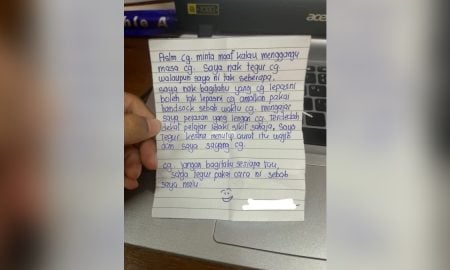 Aslm cg. minta maaf kalau menggangu
masa cg. Saya nak tegur cg.
walaupun saya ni tak seberapa.
saya nak bagitahu yang cg lepasni
boleh tak lepasni cg amalkan pakai
handsock sebab waktu cg mengajar
saya perasan yang lengan cg terdedah
dekat pelajar lelaki sikit sahaja. Saya
tegur kerana menutup aurat itu wajib
dan saya sayang cg.
cg jangan bagitahu sesiapa tau,
saya tegur pakai cara ni sebab
saya malu
acer